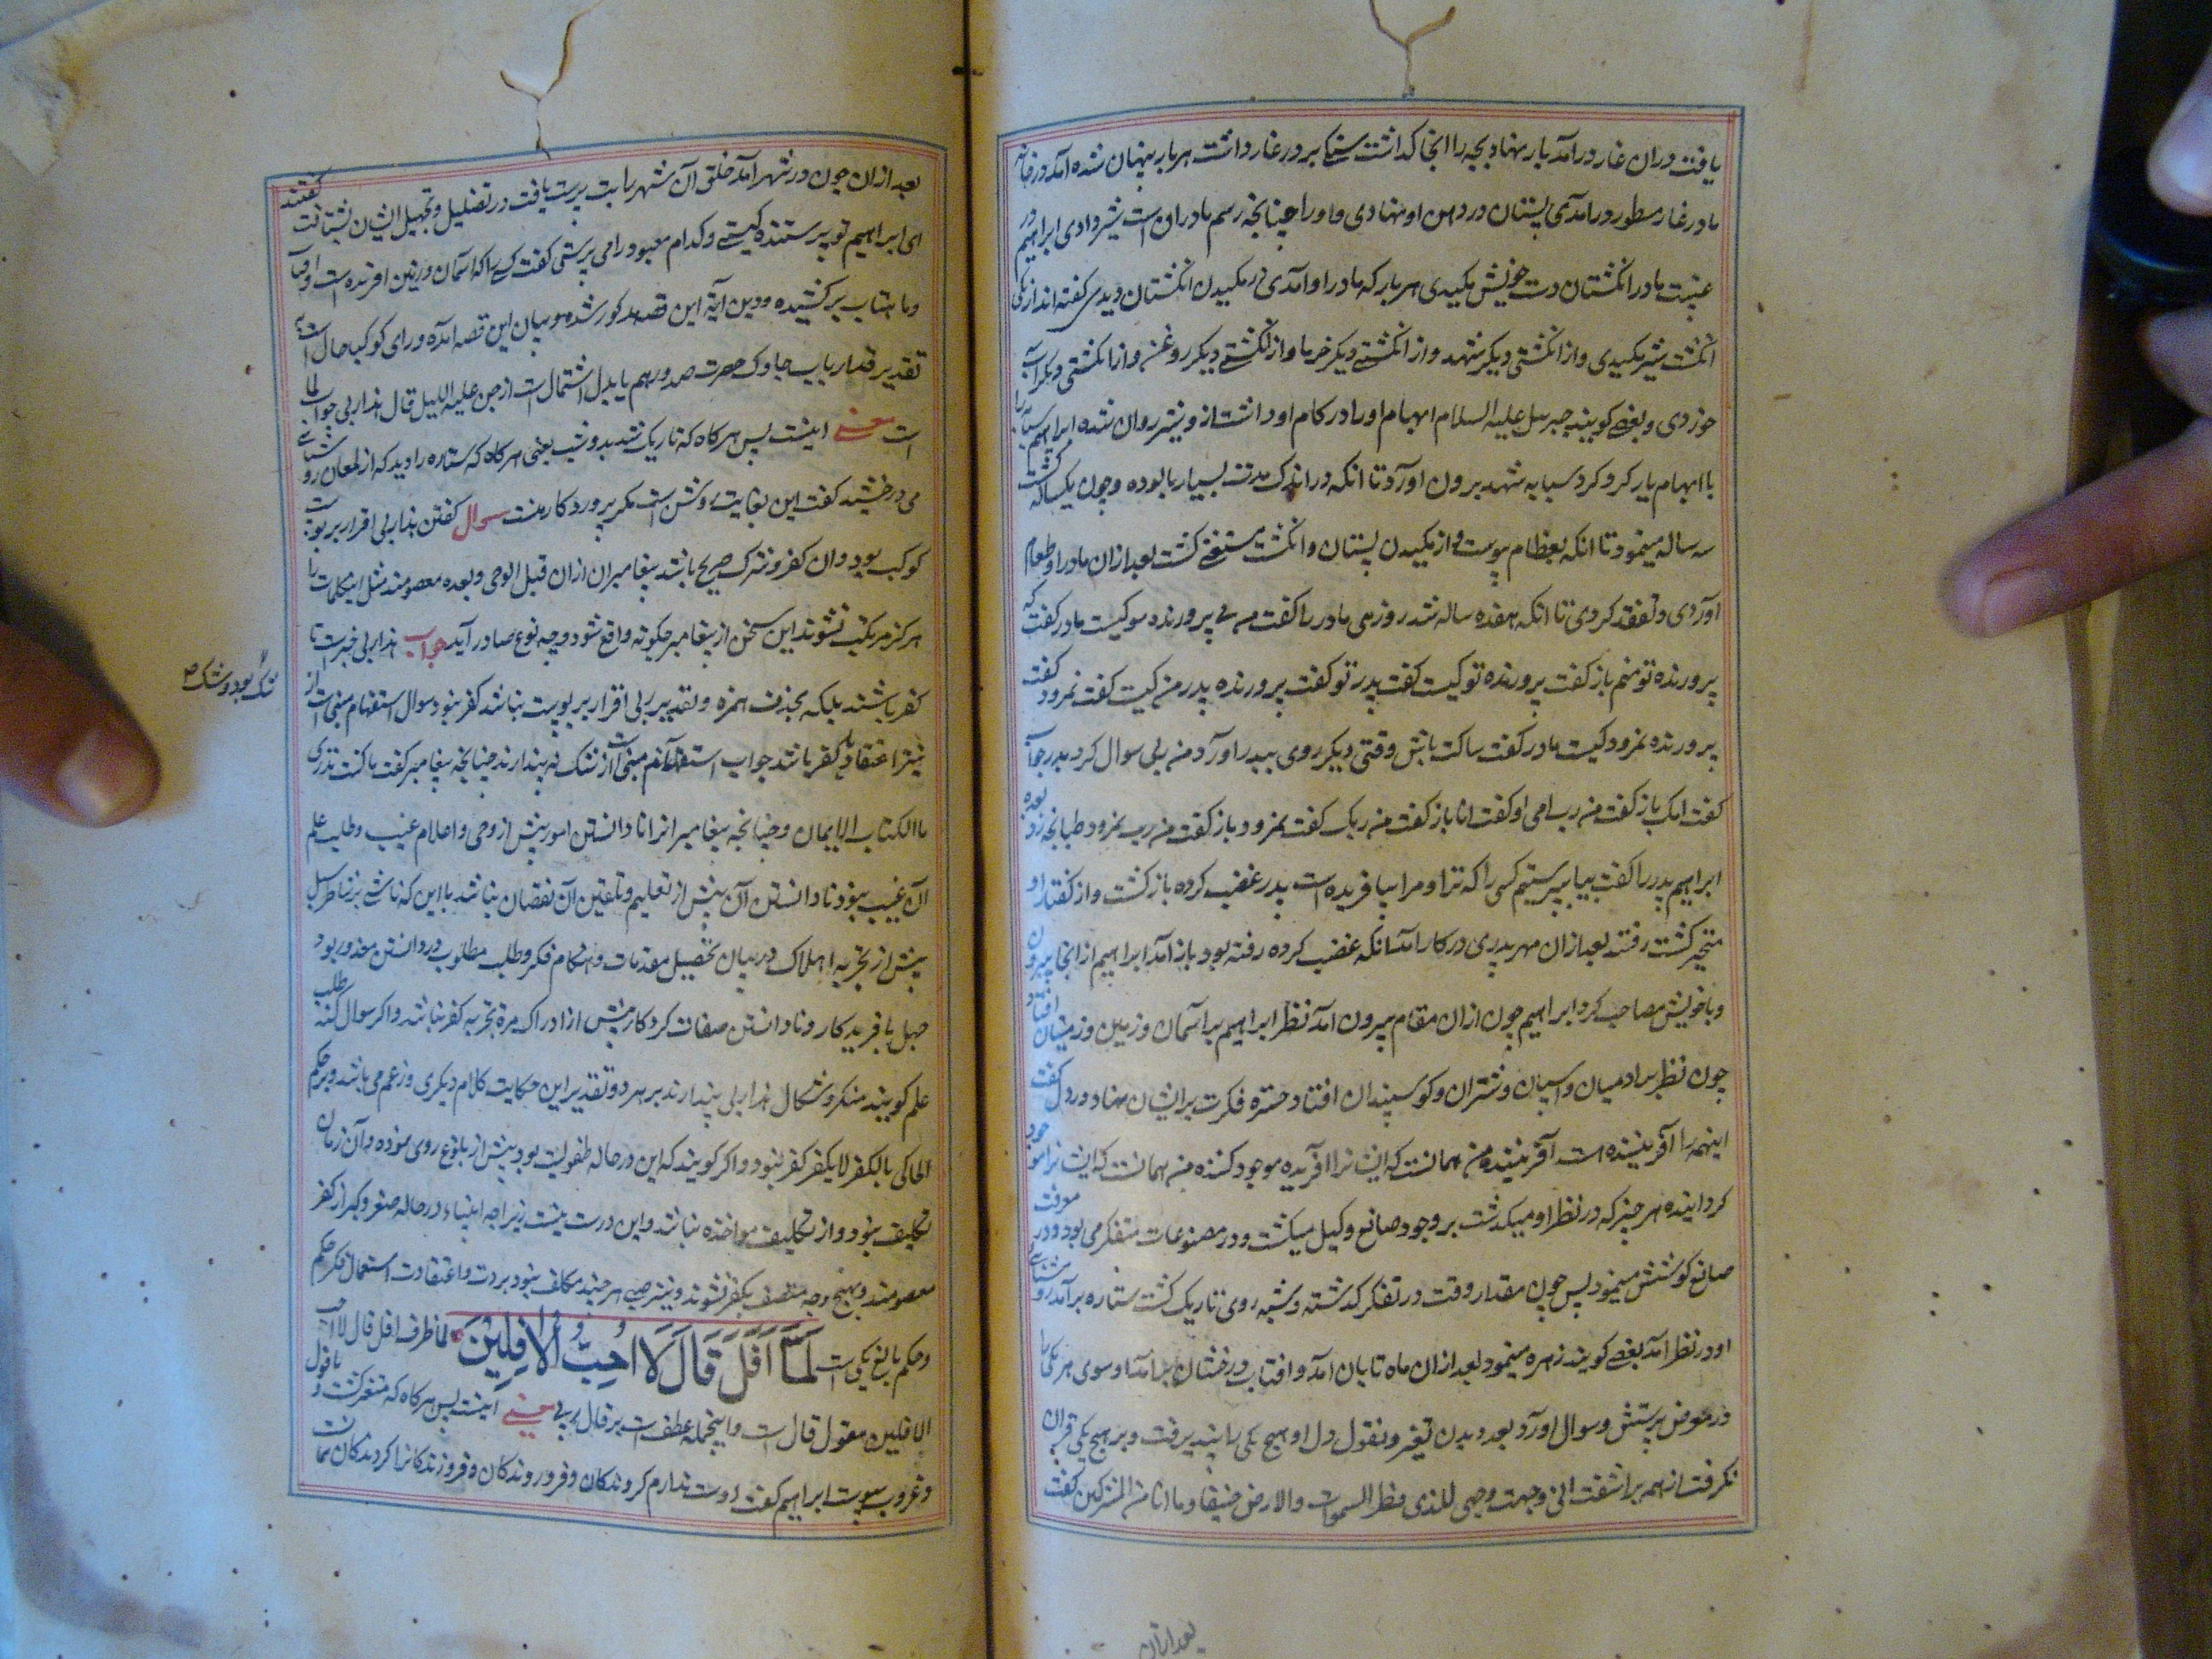 یافت دران غار درامد بار بنهاد و بچه را انجا گذاشت سنگی بر در غار داشت هر بار پنهان شده امد در خانه
مادر غار مسطور درامدی پستان در دهن او نهادی و اورا چنانچه رسم مادران است شیر دادی ابراهیم در
غیبت مادر انگشتان دست خویش مکیدی هر بار که مادر او امدی در مکیدن انگشتان دیدی گفته اند از یکی
انگشت شیر مکیدی و از انگشتی دیگر شهد و از انگشتی دیگر خرما و از انگشتی دیگر روغن و از انگشتی دیگر آب
خوردی و بعضی گویند جبرییل علیه السلام ابهام اورا در کام او داشت از و شیر روان شده ابراهیم
با ابهام یار کرد کرد سبابه شهد برون اورد تا انکه در اندک مدت بسیار بالوده و چون یکساله گشت
سه ساله مینمود تا انکه بعظام پیوست و از مکیدن پستان و انگشت مستغنی گشت بعد ازان مادر او طعام
اوردی و تفقد کردی تا انکه هفده ساله شد روزهی مادر را گفت من پرورنده کیست مادر گفت که
پرورنده تو منم باز گفت پرورنده تو کیست گفت پدر تو گفت پرورنده پدر من کیست گفت نمرود گفت
پرورنده نمرود کیست مادر گفت ساکت باش وقتی دیگر روی ببدر اورد من ربی سوال کرد پدر جواب
گفت امک باز گفت من رب امی او گفت انا باز گفت من ربک گفت نمرود باز گفت من رب نمرود طبانچه زد بعده
ابراهیم پدر را گفت بیا بپرستیم کسی را که ترا و مرا بیافریده است پدر غضب کرده بازگشت و از گفتار او
متحیر گشت رفتند بعد ازان مهر پدری در کار امد انکه غضب کرده رفته بود باز امد ابراهیم از انجا بیرون
و با خویش مصاحب کرد ابراهیم چون ازان مقام بیرون امد نظر ابراهیم بر اسمان و زمین و زمینیان افتاد
چون نظر بر ادمیان و اسپان و شتران و گوسپندان افتاد فکرت بر ایشان نهاد و در دل گفت
اینهمه را آفریننده است آفریننده من همانست که ایشانرا آفریده موجود کننده من همانست که ایشانرا موجود
گردانیده هر چیز که در نظر او میگذشت بر وجود صانع دلیل میگشت و در مصنوعات متفکر می بود و در معرفت
صانع کوشش مینمود پس چون مقدار وقت در تفکر گذشته و شبه روی تاریک گشت ستاره برآمد روشنائی
او در نظر آمد بعضی گویند زهره مینمود بعد ازان ماه تابان امد و افتاب درخشان برامد او سوی هر یکی را
در معرض پرستش و سوال اورد و بعد دیدن تغیر و نقول دل او هیچ یکی را نپذیرفت و بر هیچ یکی قرار ن
نگرفت از همه برائشفت انی وجهت وجهی للذی فطر السموات والارض حنیفا وما انا من المشرکین گفت
بعد ازان
بعد ازان چون در شهر آمد خلق آن شهر را بت پرست یافت در تضلیل و تجهیل ایشان بشتافت گفتند
ای ابراهیم تو پرستنده کیستی و کدام معبود را می پرستی گفت کسی را که اسمان و زمین افریده است او افتاب
و ماهتاب برکشیده و دین آیة این قصه مذکور شده و بیان این قصه امده و رای کوکبا حال است
تقدیر فصار باب جاوک حصرت صدورهم یا بدل اشتمال است از جن علیه اللیل قال هذا ربی جواب لما
است معنی اینست پس هرگاه که تاریک شد بدو شب یعنی هرگاه که ستاره را دید که از لمعان روشنائی
می درخشید گفت این بغایت روشن است مگر پروردگار منست سوال گفتن هذا ربی اقرار بربوبیت
کوکب بود و ان کفر و شرک صریح باشد پیغامبران ازان قبل الوحی و بعده معصومند مثل اینکلمات را
هرگز مرتکب نشوند این سخن از پیغامبر چگونه واقع شود و چه نوع صادر آید جواب هذا ربی خبر است تا
کفر باشد بلکه بحذف همزه و تقدیر ربی اقرار بربوبیت نباشد کفر نبود سوال استفهام مبنی است از
شک بود و شک
نیز اعتقاد کفر باشد جواب استفهام مبنی است از شک نه پندارند چنانچه پیغامبر گفت ما کنت تدری
ما الکتاب الایمان و چنانچه پیغامبرانرا نادانستن امور پیش از وحی و اعلام غیب و طلب علم
آن عیب نبود نادانستن آن پیش از تعلیم و تلقین آن نقصان نباشد با این که ناشی بر شاطر سبل
پیش از تجربه املاک در بیان تحصیل مقدمات و هنگام فکر و طلب مطلوب در دانستن معذور بود
جهل بافریدگار و نادانستن صفات کردگار پیش از ادراک مرة تجربه کفر نباشد و اگر سوال کنند طلب
علم گویند منکر و شکال هذا ربی پندارند بر هر دو تقدیر این حکایت کلام دیگری و زعم می باشد و بر حکم
الحاکی بالکفر لا یکفر کفر نبود و اگر گویند که این در حاله طفولیت بود پیش از بلوغ روی نموده و آن زمان
تکلیف نبود و از تکلیف مواخذه نباشد و این درست نیست زیراچه انبیاء در حاله صغر و کبر از کفر
معصومند و بهیچ وجه متصف بکفر نشوند و نیز صبی هر چند مکلف نبود بردت و اعتقادت استعمال فکر حکم
و حکم بالغ یکی است لَمَّا اَفَلَ قَالَ لَا اُحِبُّ الْاٰفِلِیْنَ لما ظرف افل قال لا احب
الافلین مقول قال است و اینجمله عطف است بر قال ربی معنی اینست پس هرگاه که متغیر گشت و بافول
و غروب پیوست ابراهیم گفت دوست ندارم گروندگان و فرو روندگان و فروزندگانرا گردندگان